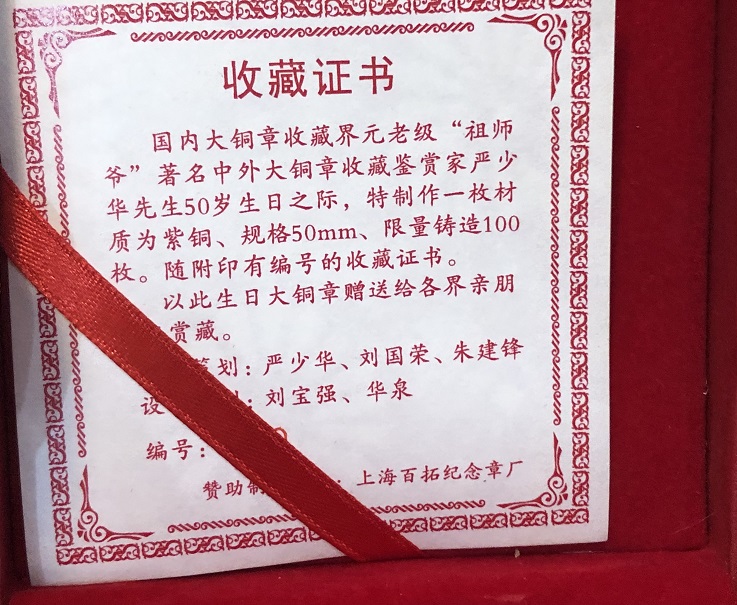 收藏证书
国内大铜章收藏界元老级“祖师
爷”著名中外大铜章收藏鉴赏家严少
华先生50岁生日之际，特制作一枚材
质为紫铜、规格50mm、限量铸造100
枚。随附印有编号的收藏证书。
以此生日大铜章赠送给各界亲朋
赏藏。
划：严少华、刘国荣、朱建锋
设：刘宝强、华泉
编号：
赞助制：上海百拓纪念章厂